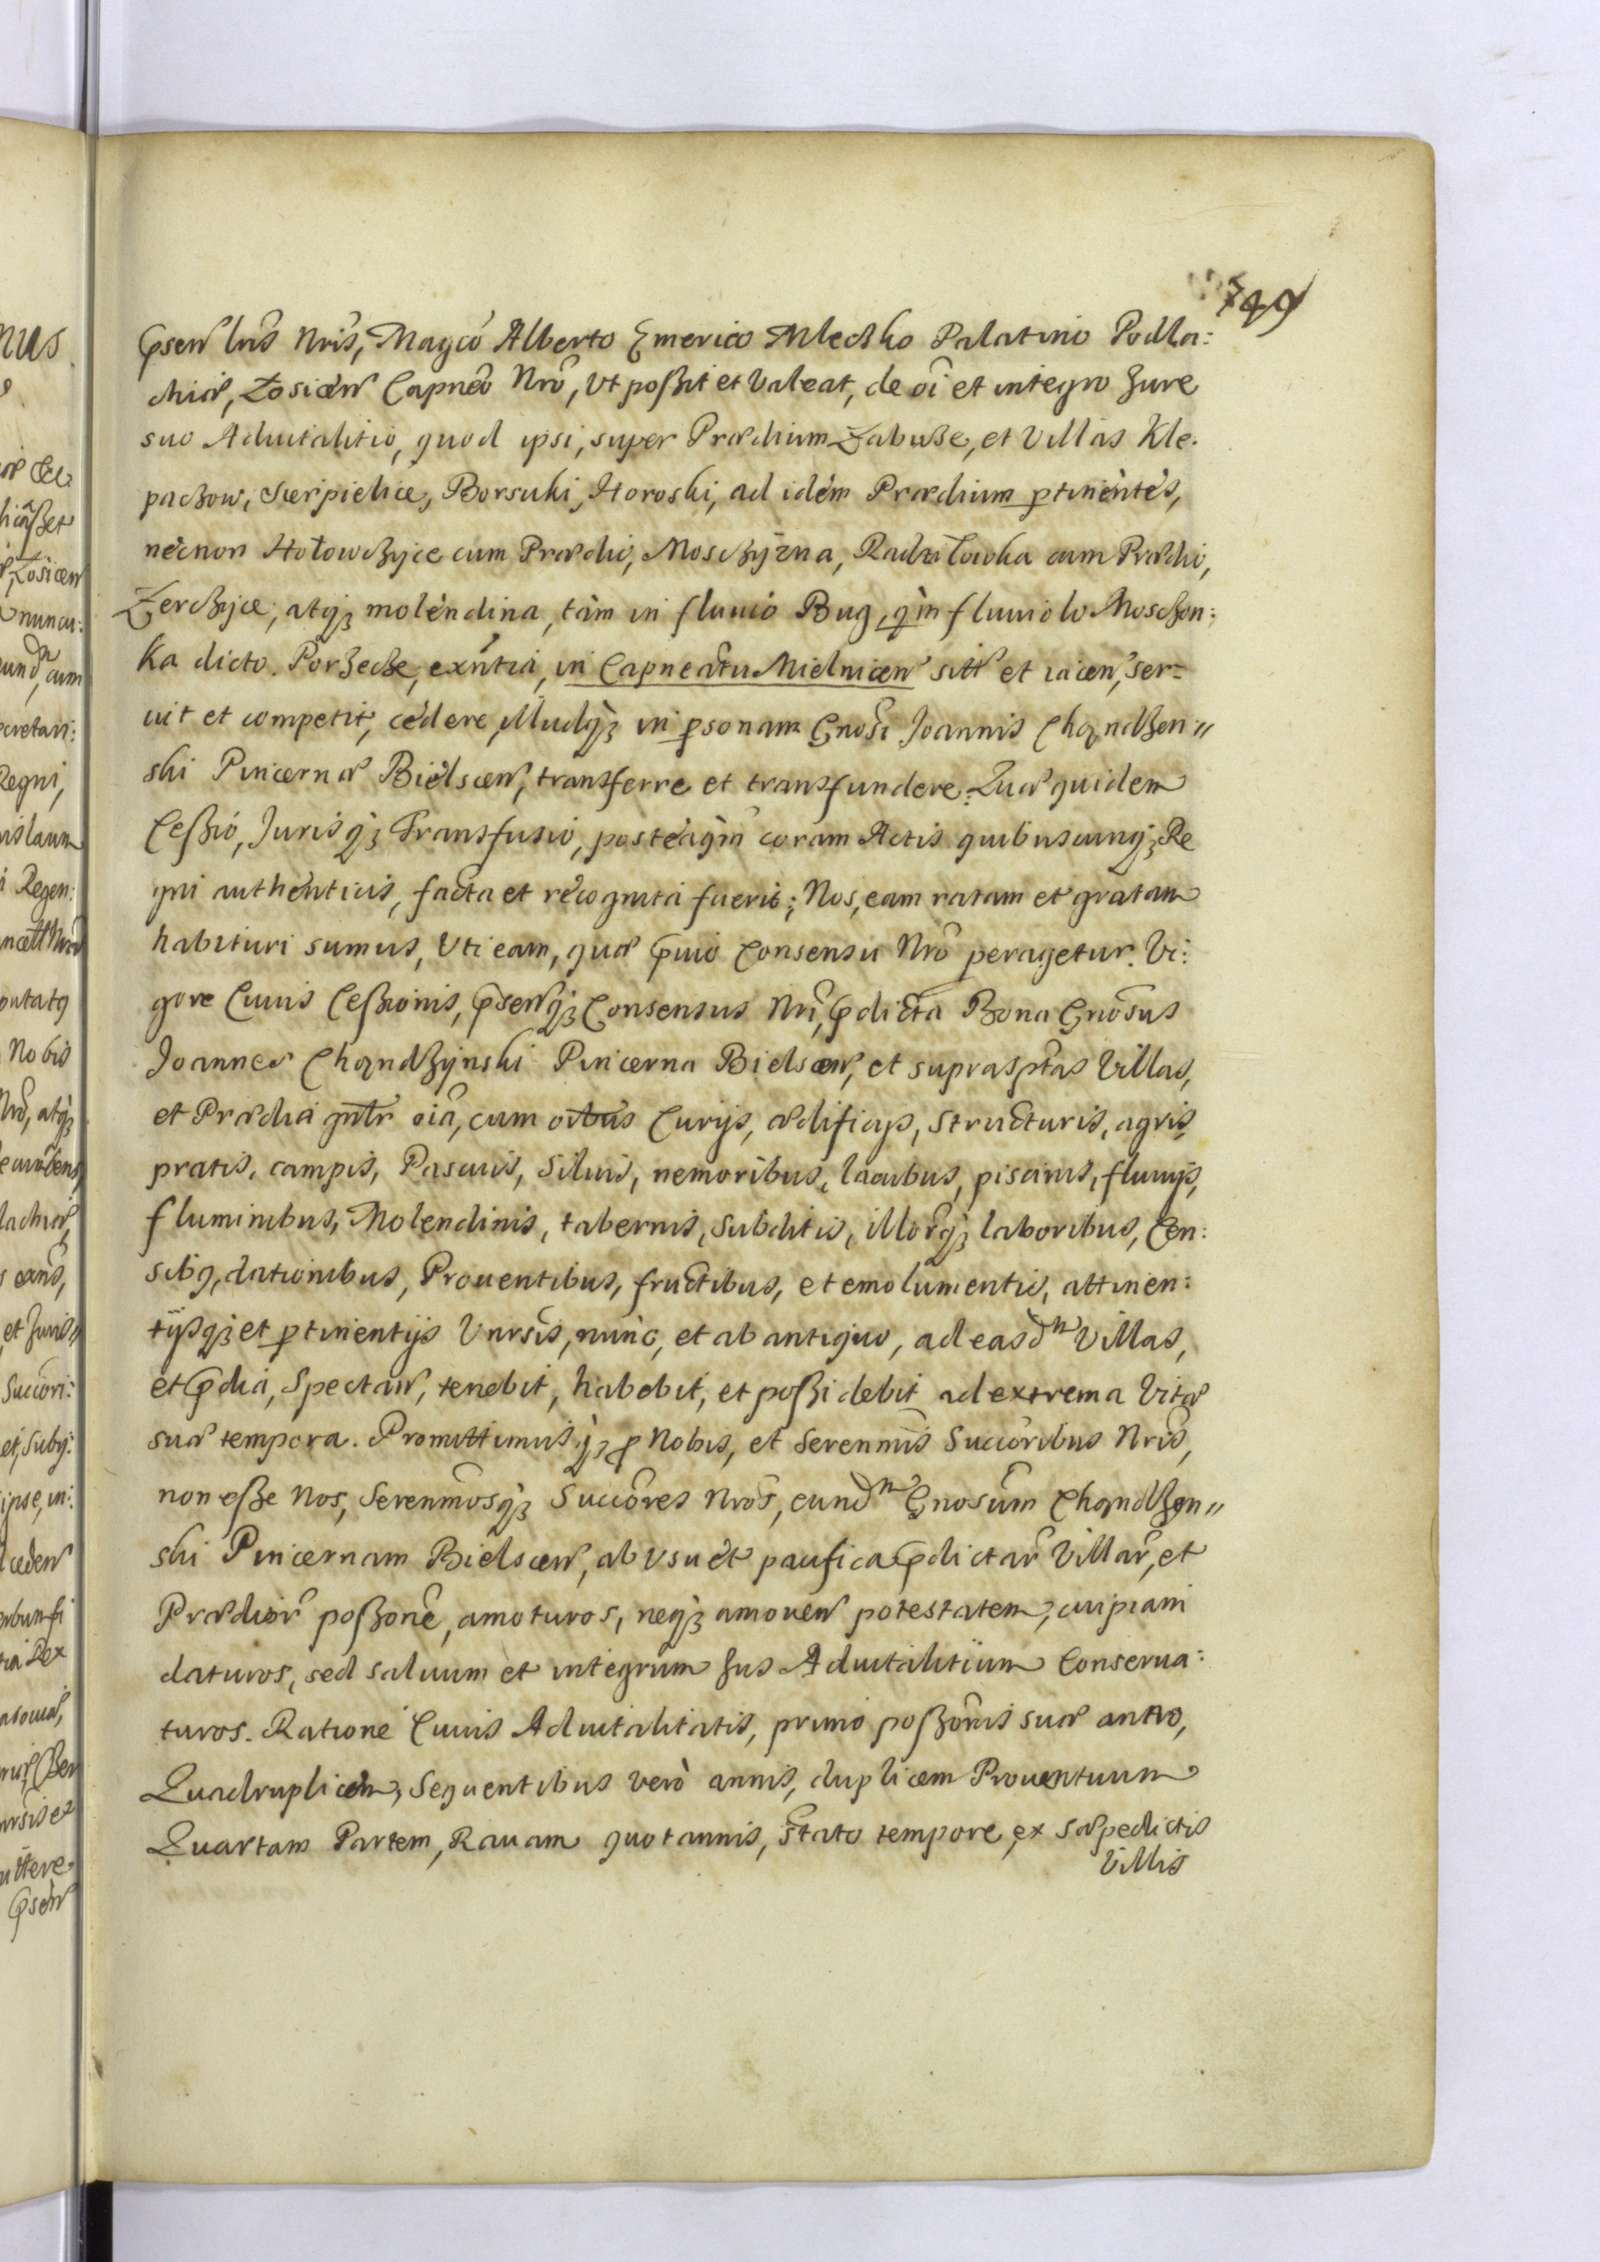 749
Psen̄ Lrīs Nrīs, Magcō Alberto Emerico Mleczko Palatino Podla:
chiæ, Łosicen̄ Capneō Nrō, Ut poßit et Valeat, de oī et integro Jure
suo Aduitalitio, quod ipsi, super Prædium Zabuże, et Villas Kle.
paczow, Sierpielice, Borsuki, Horoski, ad idem Prædium ptinentes,
necnon Hołowczyce cum Prædio, Mosczyzna, Radziłowka cum Prædio,
Zerczyce, atq₃ molendina, tàm in fluuio Bug, q̀m fluuiolo Moszczon:
ka dicto. Porzecze, exn̄tia, in Capneātu Mielnicen̄ sitt̄ et iacen̄, ser=
uit et competit, cedere, illudq₃ in psonam Gnosī Joannis Chądzyn//
ski Pincernæ Bielscen̄, transferre et transfundere. Quæ quidem
Ceßio, Jurisq₃ Transfusio, posteaq̀m coram Actis quibuscunq₃ Re
gni authenticis, facta et recognita fuerit; Nos, eam ratam et gratam
habituri sumus, Uti eam, quæ pruio Consensu Nrō peragetur. Vi:
gore Cuius Ceßionis, psen̄q₃ Consensus Nrī, pdicta Bona Gnōsus
Joannes Chądzynski Pincerna Bielscen̄, et suprasptas Villas,
et Prædia gnlr̄ oīa, cum oībus Curijs, ædificijs, structuris, agris,
pratis, campis, Pascuis, Siluis, nemoribus, lacubus, piscinis, fluuijs,
fluminibus, Molendinis, tabernis, Subditis, illorq₃ laboribus, Cen:
sibq, dationibus, Prouentibus, fructibus, et emolumentis, attinen:
tijsq₃ et ptinentijs Unrsīs, nunc, et ab antiquo, ad easdm̄ Villas,
et pdia, Spectan̄, tenebit, habebit, et poßidebit ad extrema Vitæ
suæ tempora. Promittimusq₃ p Nobis, et Serenmīs Succōribus Nrīs,
non eße Nos, Serenmōsq₃ Succōres Nrōs, eundm̄ Gnosūm Chądzyn//
ski Pincernam Bielscen̄, ab usu et pacifica pdictar̄ Villar̄, et
Prædior̄ poßonē, amoturos, neq₃ amouen̄ potestatem, cuipiam
daturos, sed saluum et integrum Jus Aduitalitium Conserua:
turos. Ratione Cuius Aduitalitatis, primo poßonīs suæ anno,
Quadruplicem, Sequentibus verò annis, duplicem Prouentuum
Quartam Partem, Rauam quotannis, stato tempore, ex sæpedictis
Villis